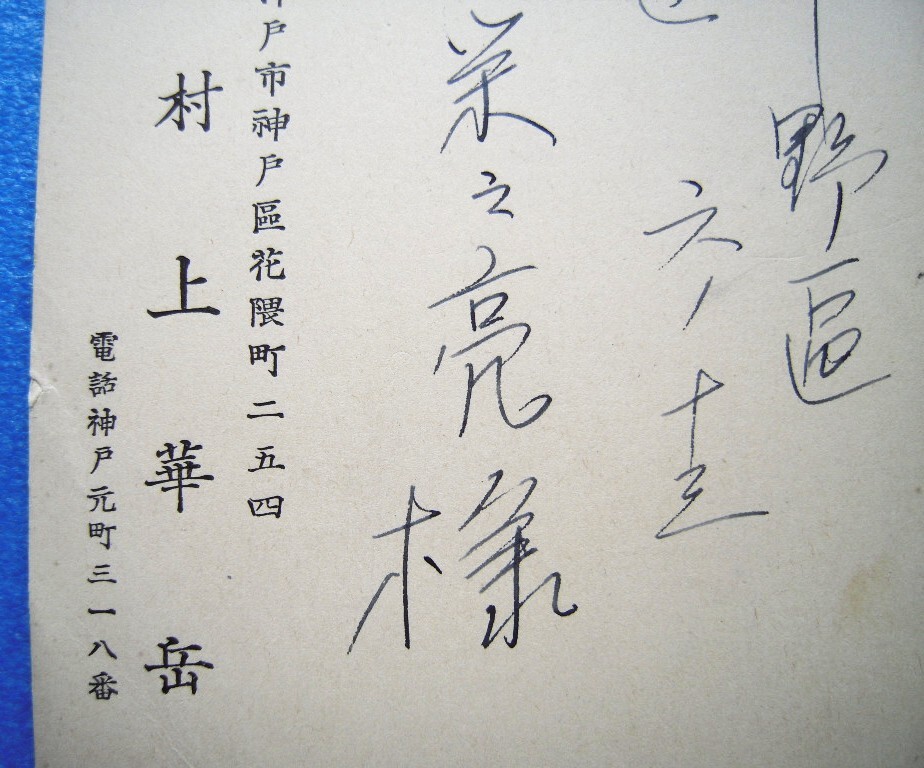 野區
六ノ十三
栄之亮様
戸市神戸區花隈町二五四
村上華岳
電話神戸元町三一八番